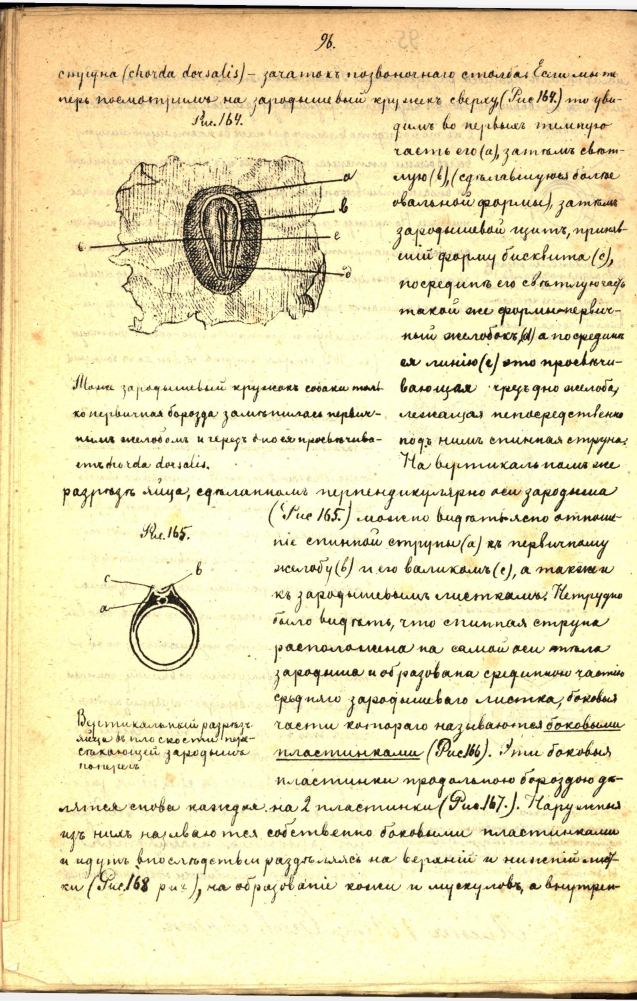 96.
струна (chorda dorsalis) – зачатокъ позвоночнаго столба. Если мы те
перь посмотримъ на зародышевый кружекъ сверху, (Рис 164.) то уви-
Рис. 164.
димъ во первыхъ темную
часть его (а), затѣмъ свѣт-
лую (b), (сдѣлавшуюся болѣе
овальной формы), затѣмъ
зародышевой щитъ, приняв-
шій форму бисквита (с),
посрединѣ его свѣтлую часть
такой же формы – первич-
ный желобокъ, (d) а посрединѣ
ея линію (е) это просвѣчи-
вающая чрезъ дно желоба,
лежащая непосредственно
подъ нимъ спинная струна.
На вертикальномъ же
a
b
e
d
c
Тоже зародышевый кружокъ собаки толь
ко первичная борозда замѣнилась первич-
нымъ желобомъ и черезъ дно ея просвѣчива-
етъ chorda dorsalis.
разрѣзѣ яйца, сдѣланномъ перпендикулярно оси зародыша
(Рис 165.) можно видѣть ясно отноше-
ніе спинной струны (а) къ первичному
желобу (b) и его валикомъ (с), а также и
къ зародышевымъ листкамъ. Нетрудно
было видѣть, что спинная струна
расположена на самой оси тѣла
зародыша и образована срединною частію
средняго зародышеваго листка, боковыя
части котораго называются боковыми
пластинками (Рис 166). Эти боковыя
пластинки продольною бороздою дѣ-
Рис. 165.
c
b
a
Вертикальный разрѣзъ
яйца въ плоскости пере-
сѣкающей зародышъ
поперегъ
лятся снова каждая на 2 пластинки (Рис. 167.). Наружныя
изъ нихъ называются собственно боковыми пластинками
и идутъ впослѣдствіи раздѣляясь на верхній и нижній лист-
ки (Рис. 168), на образованіе кожи и мускуловъ, а внутрен-